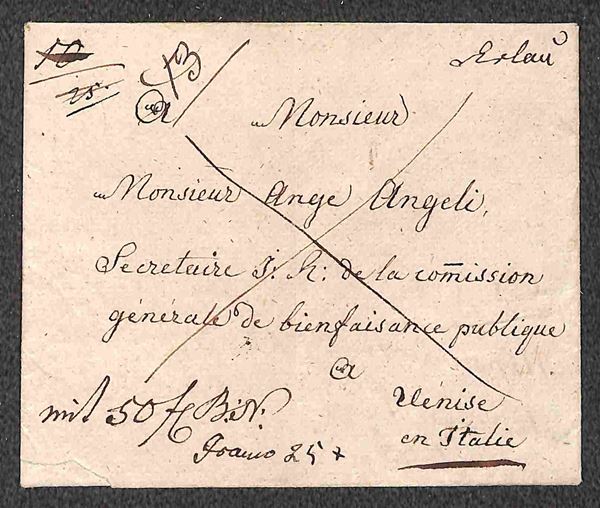 50
25.
43
Erlau
a Monsieur
Monsieur Ange Angeli,
Secretaire I. R: de la com̄ission
générale de bienfaisance publique
a
Venise
en Italie
mit 50 f B:N.
Franco 25 x